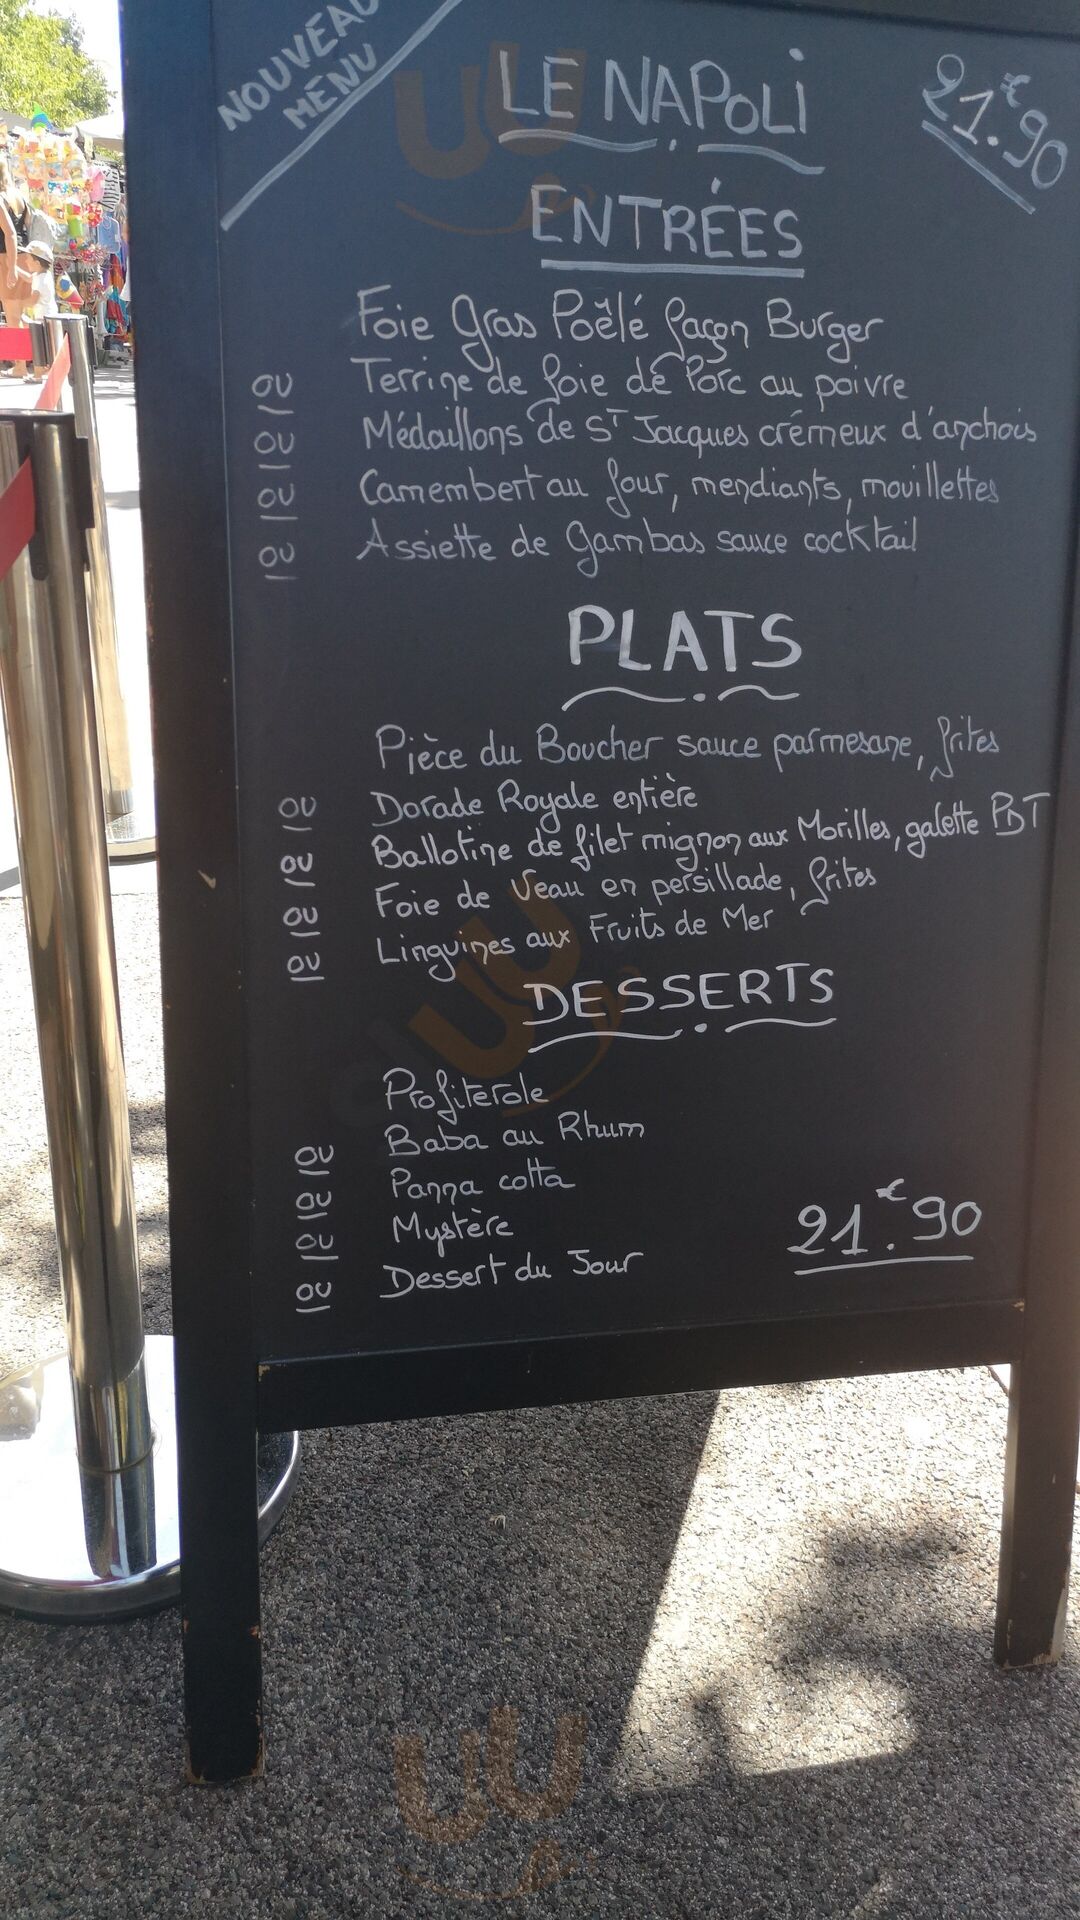 NOUVEAU
MENU
LE NAPOLI
21.€90
ENTRÉES
Foie Gras Poêlé façon Burger
ou Terrine de foie de Porc au poivre
ou Médaillons de ST Jacques crémeux d'anchois
ou Camembert au four, mendiants, mouillettes
ou Assiette de Gambas sauce cocktail
PLATS
Pièce du Boucher sauce parmesane, frites
ou Dorade Royale entière
ou Ballotine de filet mignon aux Morilles, galette PDT
ou Foie de Veau en persillade, frites
ou Linguines aux Fruits de Mer
DESSERTS
Profiterole
ou Baba au Rhum
ou Panna cotta
ou Mystère
ou Dessert du Jour
21.€90